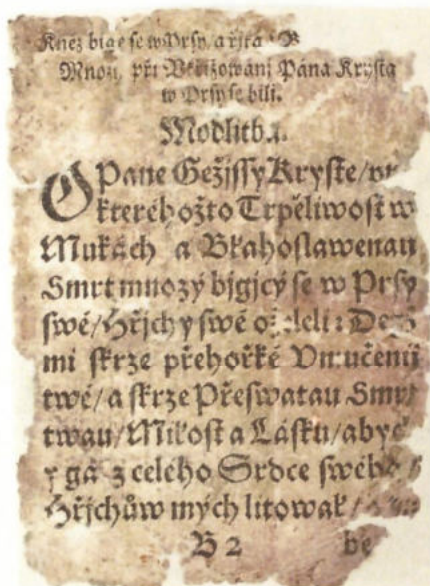 Kněz bige se w Prsy, a řjká
Mnozý, při Vkřižowánj Pána Krysta
w Prsy se bili.
Modlitba.
O Pane Gežjssy Kryste/
kterehožto Trpěliwost w
Mukách a Błahosławenau
Smrt mnozý bjgjcý se w Prsy
swé/ Hřjchy swé oželeli:
mi skrze přehořké Vmučenj
twé/ a skrze Přeswatau Smrt
twau/ Miłost a Lásku/ abych
y gá z celého Srdce swého
Hřjchůw mých litował/
B 2 be